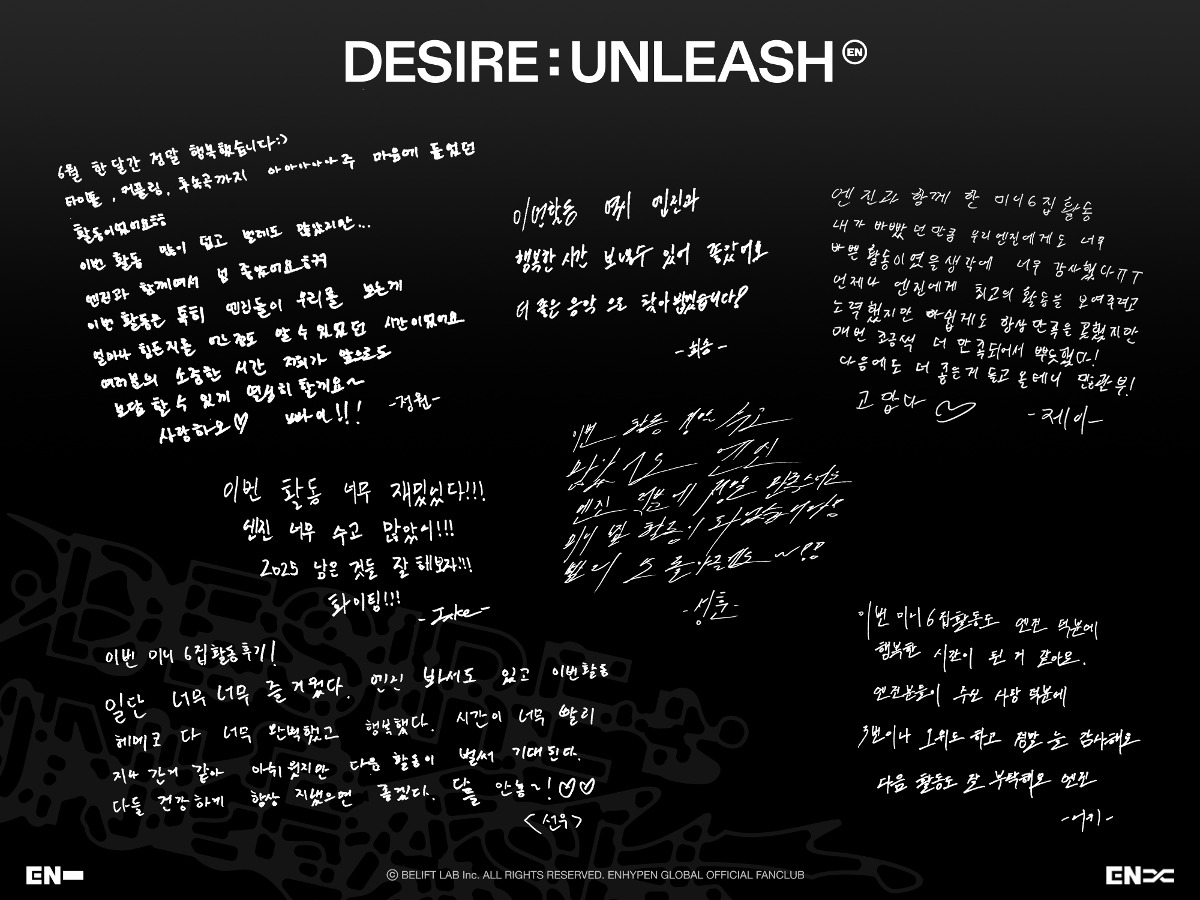 DESIRE : UNLEASH EN
6월 한 달간 정말 행복했습니다:)
타이틀, 커플링, 후속곡까지 아아아아아주 마음에 들었던
활동이었어요ㅎㅎ
이번 활동 많이 덥고 벌레도 많았지만...
엔진과 함께여서 넘 좋았어요ㅎㅎ
이번 활동은 특히 엔진들이 우리를 보는게
얼마나 힘든지를 알 수 있었던 시간이었어요
여러분의 소중한 시간 저희가 앞으로도
보답 할 수 있게 열심히 할게요~
사랑하오♡ 빠이!!!
-정원-
이번활동 엔진과
행복한 시간 보낼수 있어 좋았어요
더 좋은 음악으로 찾아뵙겠습니다!
-희승-
엔진과 함께 한 미니6집 활동
내가 바빴던만큼 우리엔진에게도 너무
바쁜 활동이였을생각에 너무 감사했다ㅠㅠ
언제나 엔진에게 최고의 활동을 보여주려고
노력했지만 아쉽게도 항상 만족을 못했지만
매번 조금씩 더 만족되어서 뿌듯했다!
다음에도 더 좋은거 들고 올테니 많관부!
고맙다 ♡
-제이-
이번 활동 너무 재밌었다!!!
엔진 너무 수고 많았어!!!
2025 남은 것들 잘 해보자!!!
화이팅!!!
-Jake-
이번 활동 정말 수고
많았어요 엔진
엔진 덕분에 정말 만족스러운
미니 6집 활동이 되었습니다
-성훈-
이번 미니 6집활동후기!
일단 너무 너무 즐거웠다. 엔진 봐서도 있고 이번활동
헤메코 다 너무 완벽했고 행복했다. 시간이 너무 빨리
지나 간거 같아 아쉬웠지만 다음 활동이 벌써 기대된다.
다들 건강하게 항상 지냈으면 좋겠다. 담 안뇽~!♡♡
<선우>
이번 미니6집활동도 엔진 덕분에
행복한 시간이 된 거 같아요.
엔진분들이 주신 사랑 덕분에
3번이나 1위도 하고 정말 감사해요
다음 활동도 잘 부탁해요 엔진
-니키-
EN-
© BELIFT LAB Inc. ALL RIGHTS RESERVED. ENHYPEN GLOBAL OFFICIAL FANCLUB
EN